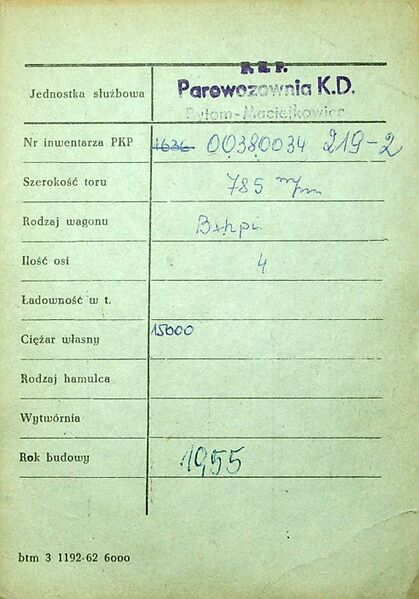 P. K. P.
Jednostka służbowa Parowozownia K.D.
Bytom-Maciejkowice
Nr inwentarza PKP 1636 00380034 219-2
Szerokość toru 785 m/m
Rodzaj wagonu Bxhpi
Ilość osi 4
Ładowność w t.
Ciężar własny 15000
Rodzaj hamulca
Wytwórnia
Rok budowy 1955
btm 3 1192-62 6000